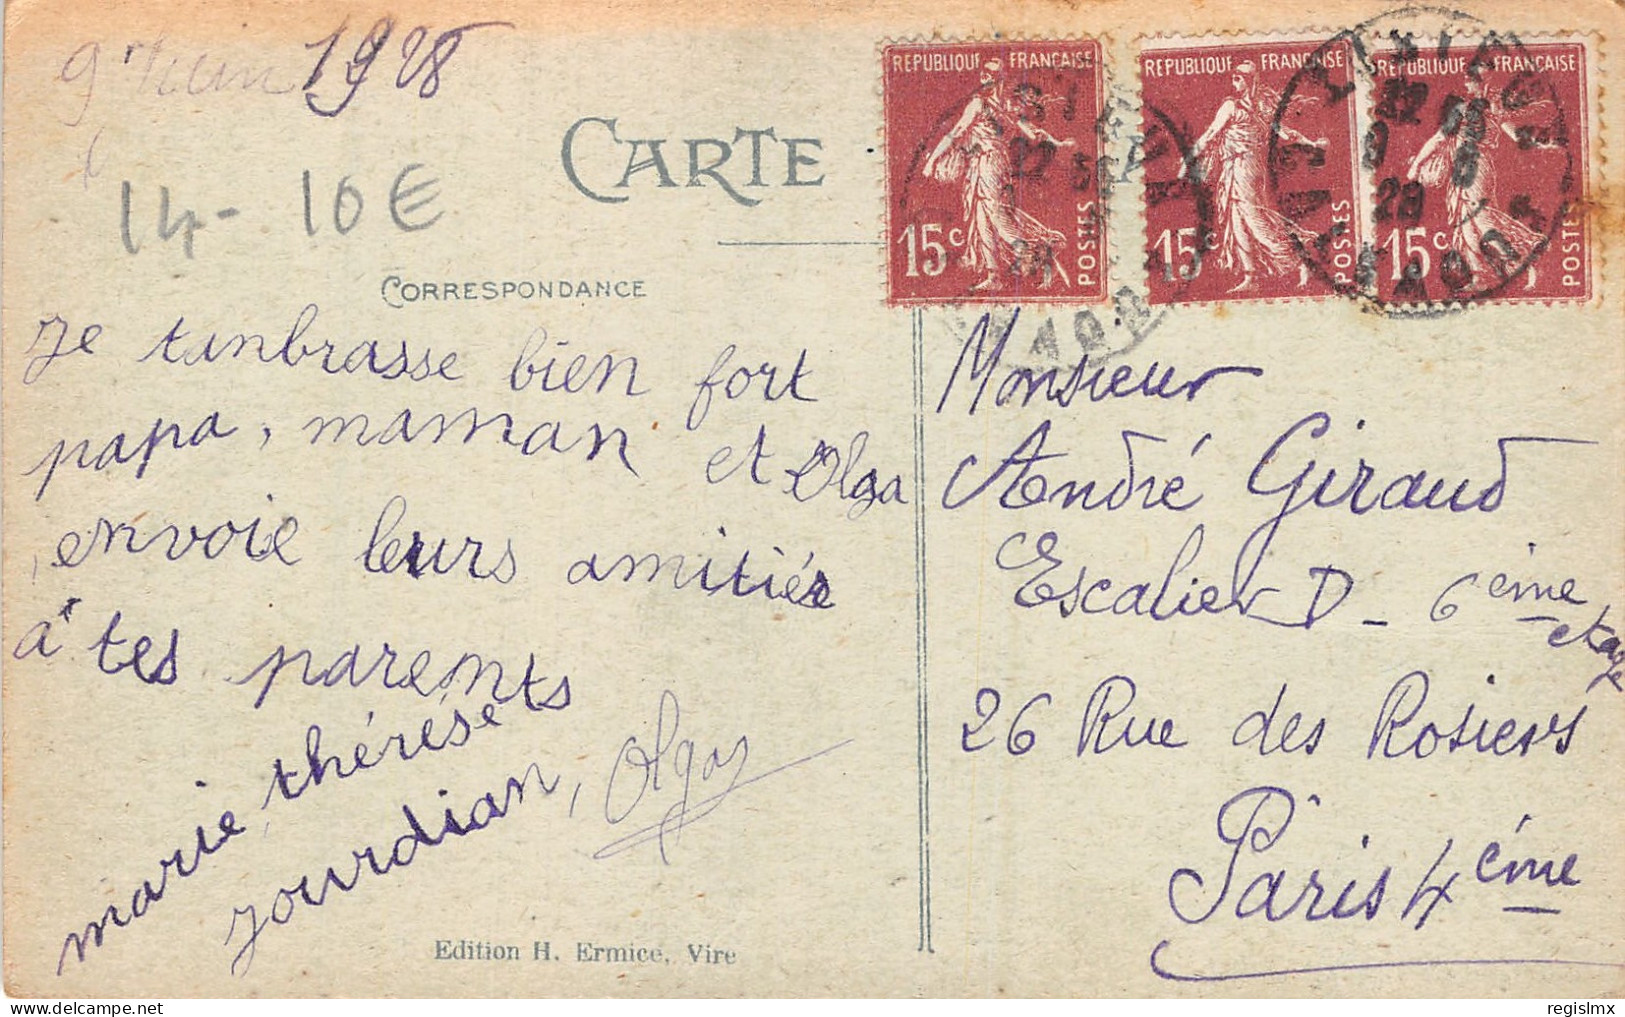 9 Juin 1928
14 - 10€
CARTE
CORRESPONDANCE
Je tanbrasse bien fort
papa, maman et Olga
envoie leurs amitiés
à tes parents
marie thérése
Jourdian, Olga
Edition H. Ermice, Vire
REPUBLIQUE FRANÇAISE
15c POSTES
REPUBLIQUE FRANÇAISE
15c POSTES
REPUBLIQUE FRANÇAISE
15c POSTES
CALVADOS
Monsieur
André Giraud
Escalier D - 6ème etage
26 Rue des Rosiers
Paris 4ème
regislmx
delcampe.net